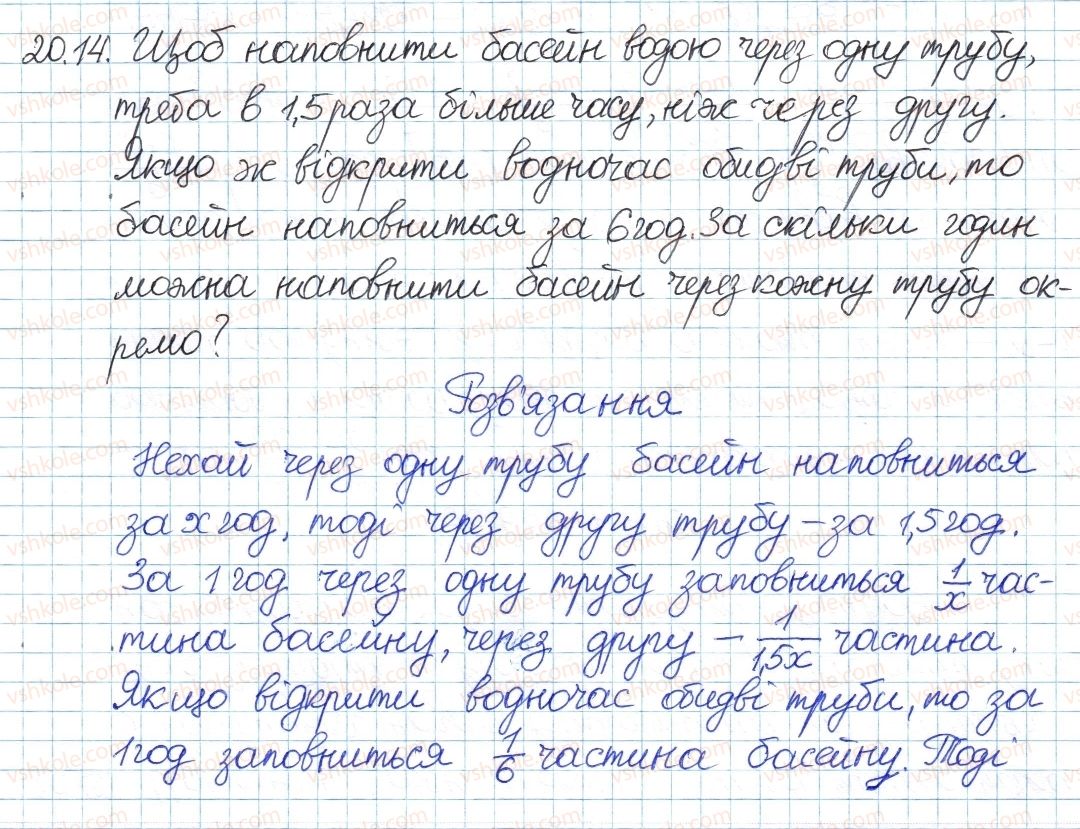 20.14. Щоб наповнити басейн водою через одну трубу,
треба в 1,5 раза більше часу, ніж через другу.
Якщо ж відкрити водночас обидві труби, то
басейн наповниться за 6 год. За скільки годин
можна наповнити басейн через кожну трубу ок-
ремо?
Розв'язання
Нехай через одну трубу басейн наповниться
за x год, тоді через другу трубу – за 1,5 год.
За 1 год через одну трубу заповниться 1/x час-
тина басейну, через другу – 1/1,5x частина.
Якщо відкрити водночас обидві труби, то за
1 год заповниться 1/6 частина басейну. Тоді